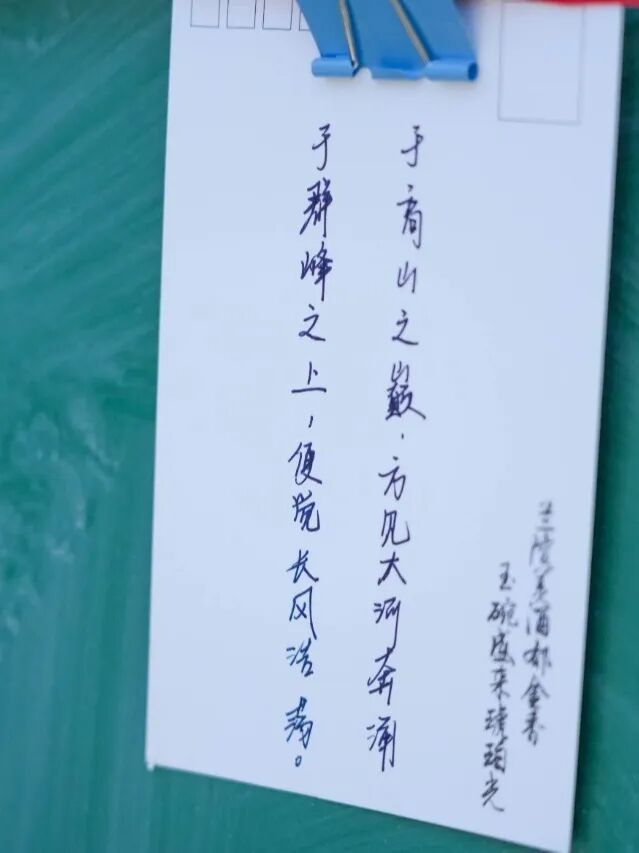 兰陵美酒郁金香
玉碗盛来琥珀光
于高山之巅，方见大河奔涌
于群峰之上，便觉长风浩荡。